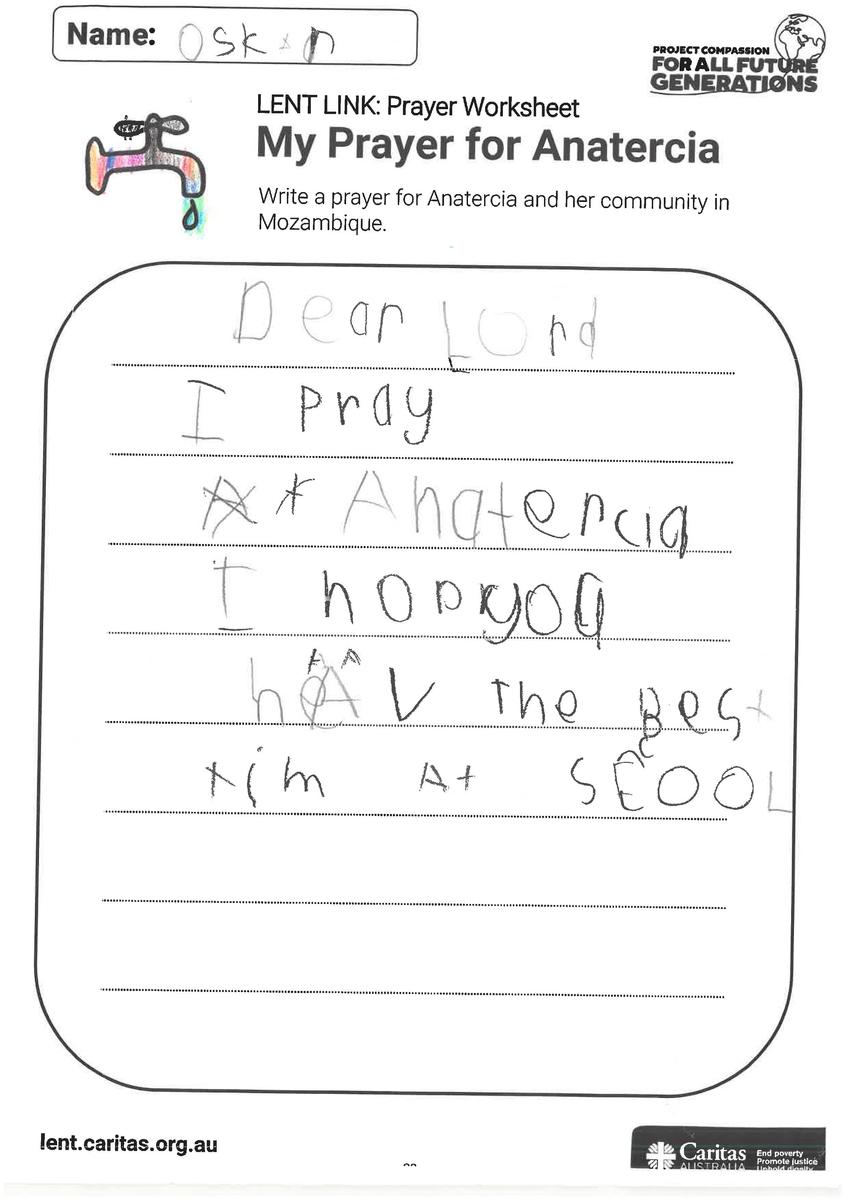 Name: Osk n
PROJECT COMPASSION
FOR ALL FUTURE
GENERATIONS
LENT LINK: Prayer Worksheet
My Prayer for Anatercia
Write a prayer for Anatercia and her community in
Mozambique.
Dear Lord
I pray
Anatercia
I hop you
hAv the Best
tim At ScOOL
lent.caritas.org.au
Caritas
AUSTRALIA
End poverty
Promote justice
Uphold dignity